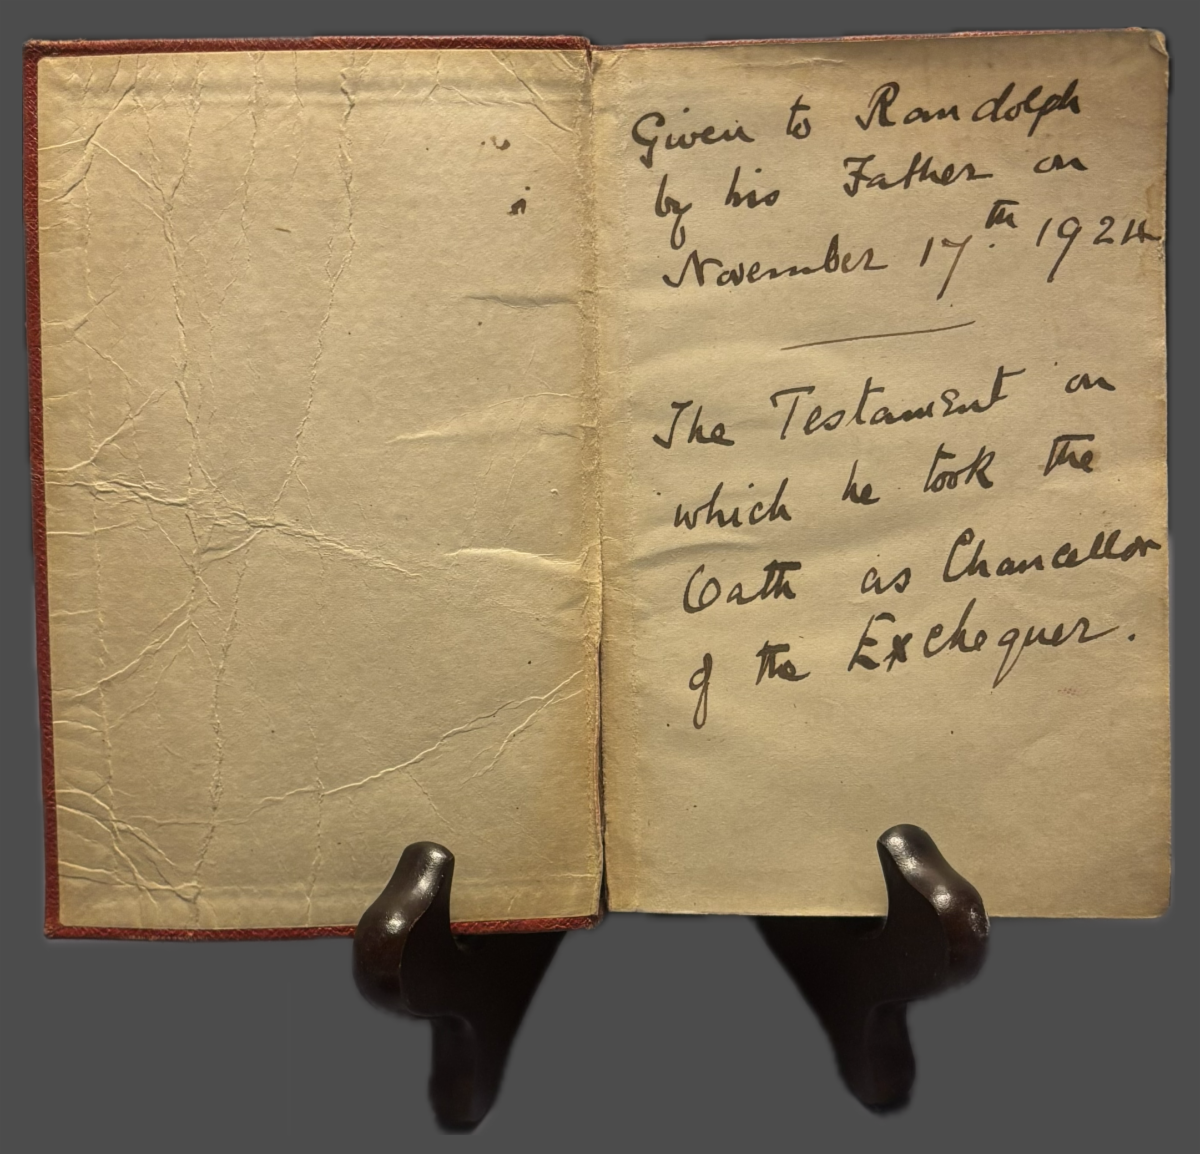 Given to Randolph
by his Father on
November 17th 1924
The Testament on
which he took the
Oath as Chancellor
of the Exchequer.